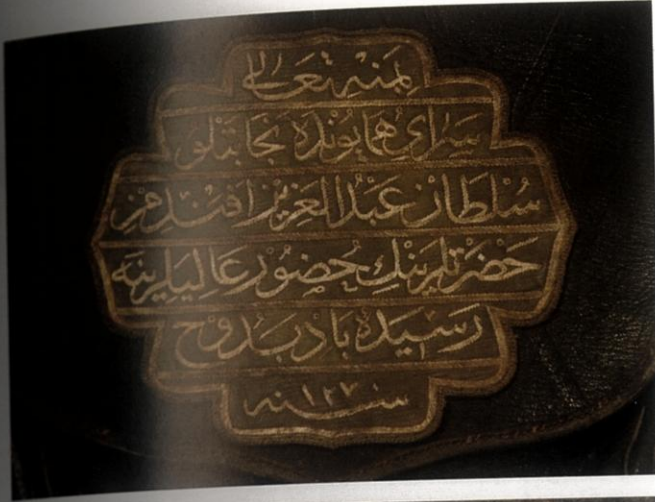 بمنه تعالى
سراى همايونده نجابتلو
سلطان عبد العزيز افندمز
حضرتلرينك حضور عاليلرينه
رسيده باد بدوح
سنه ١٢٧